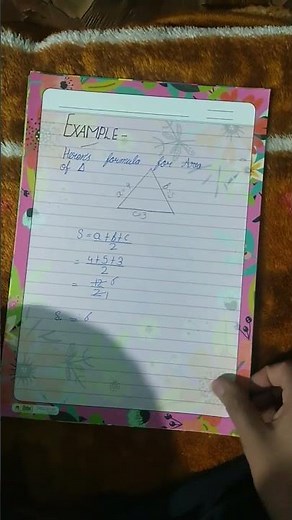 EXAMPLE =
Heron's formula for Area
of Δ
a=4
b=5
c=3
S = a+b+c
2
= 4+5+3
2
= 12 6
2 1
S = 6